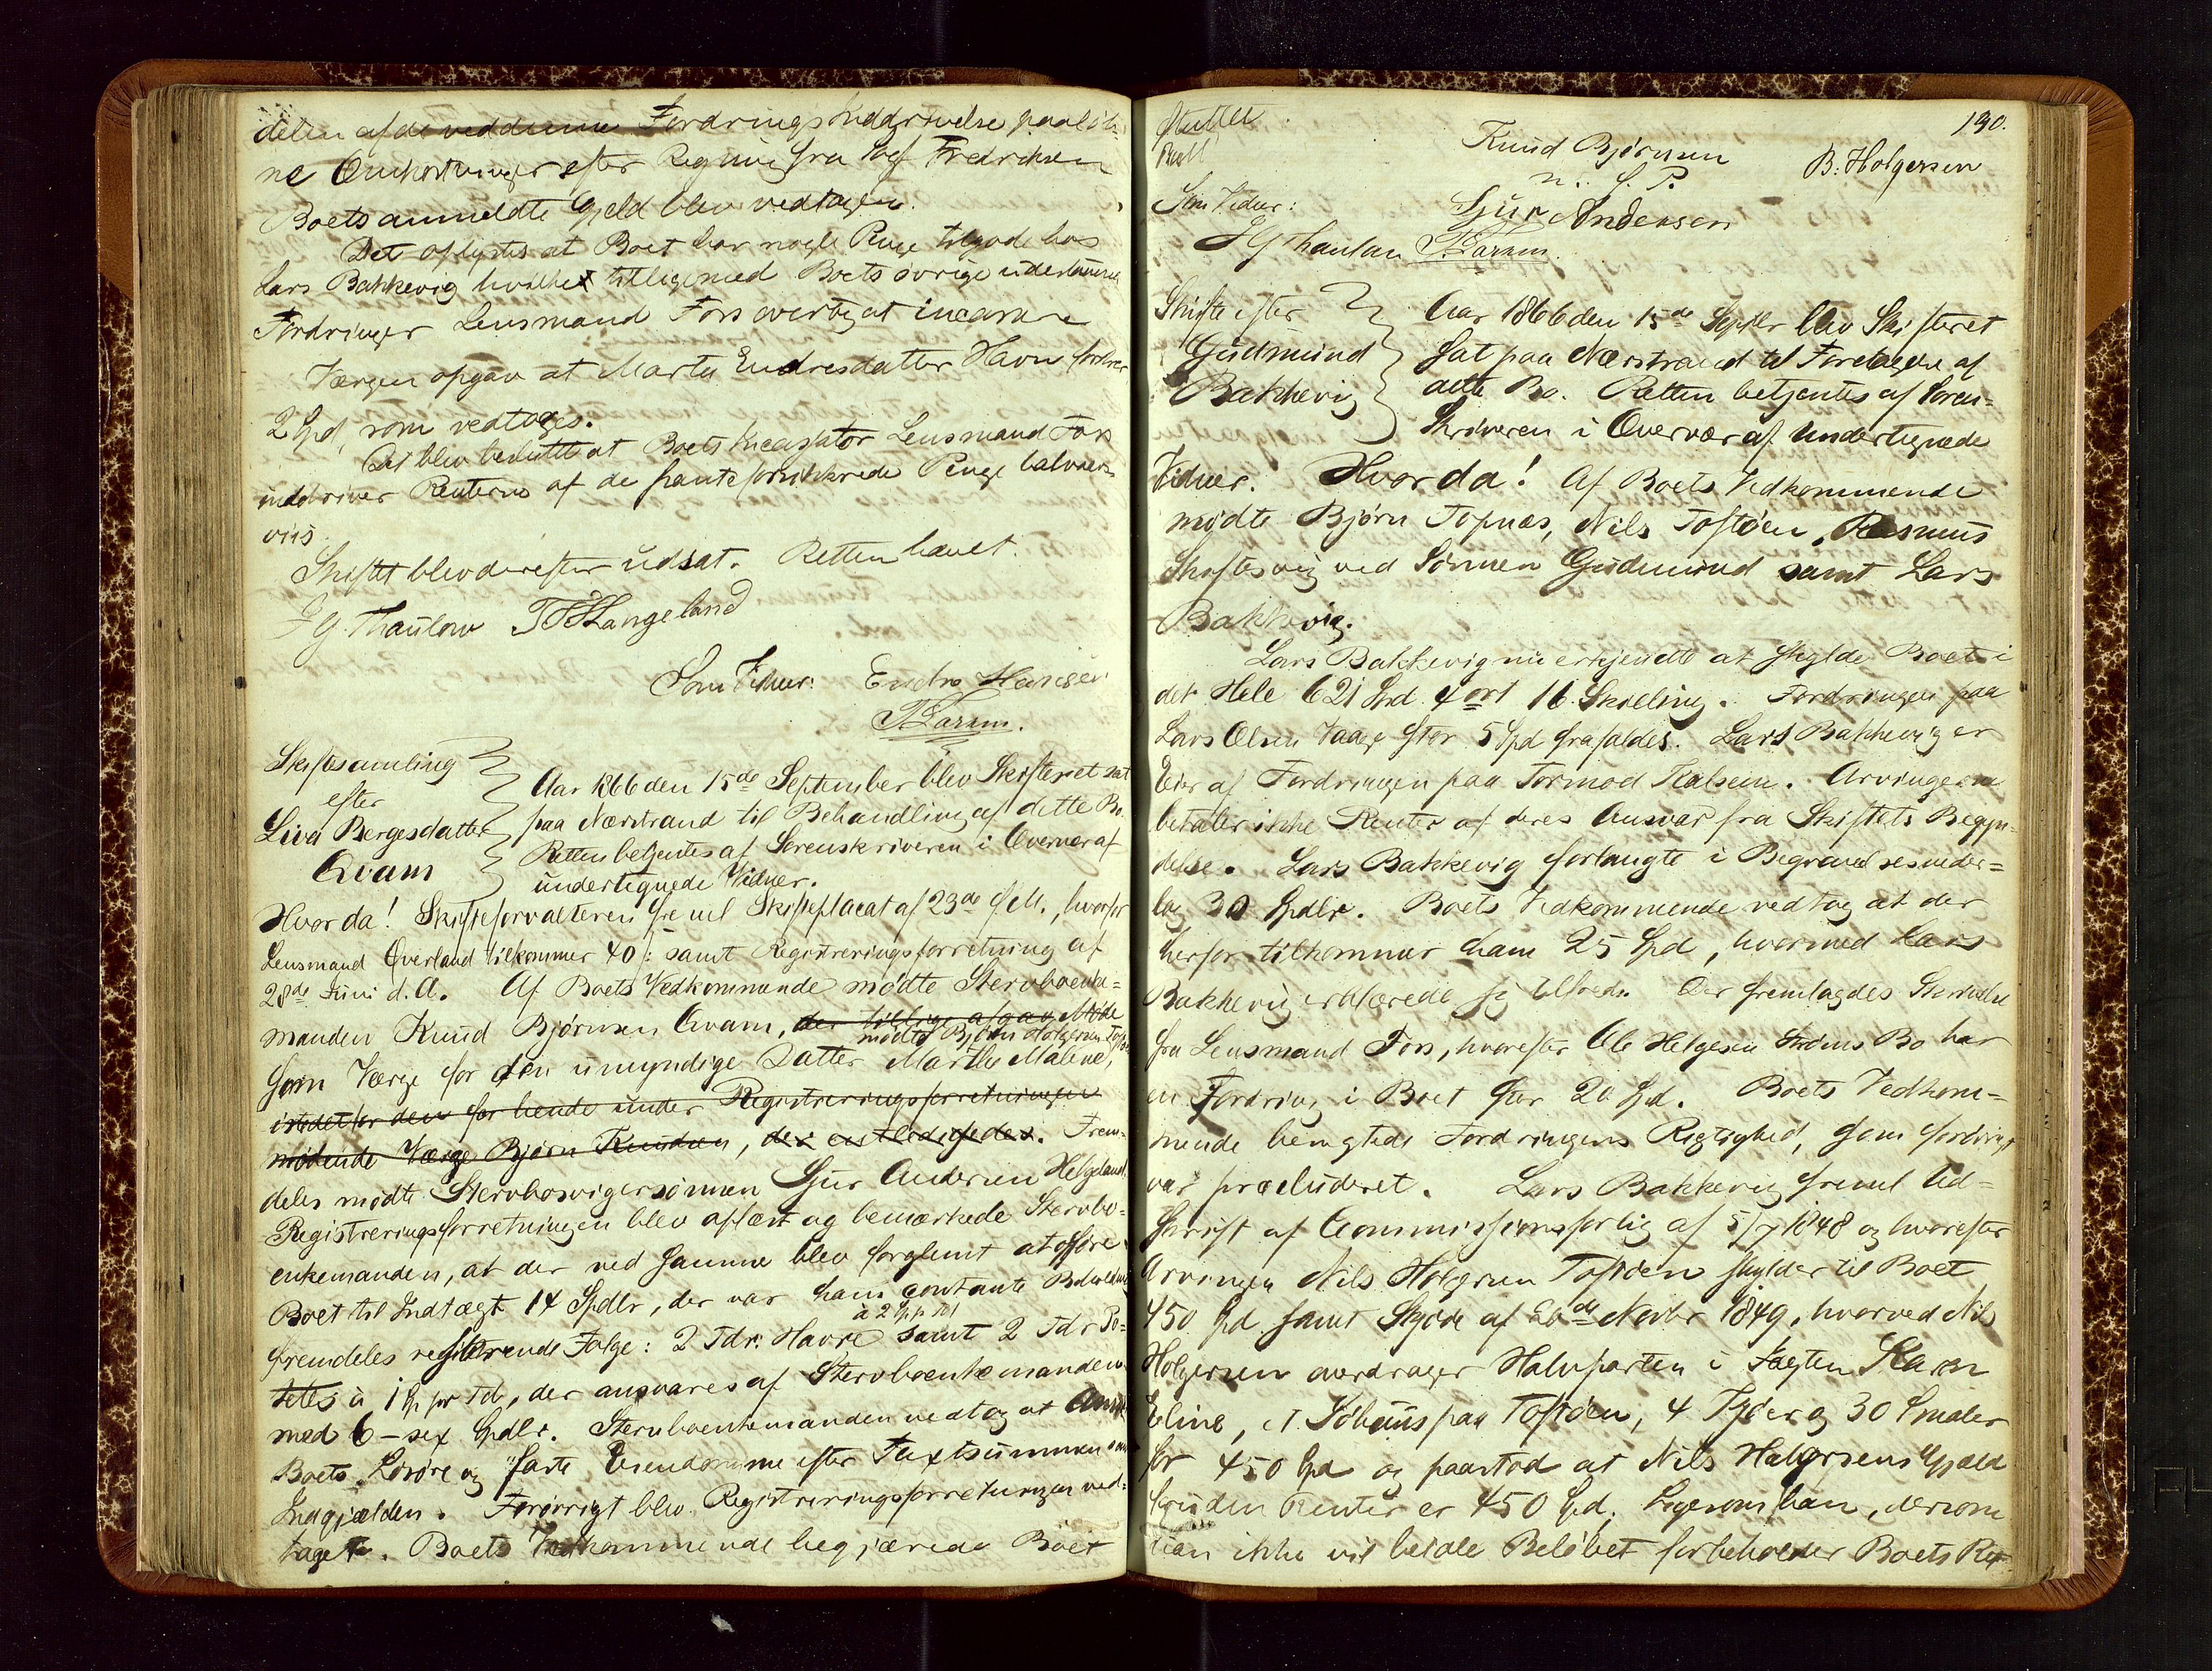 delen af de Fordrings Inddrivelse
ne Omkostninger efter Regning fra Fredriksen
Boets anmeldte Gjeld blev vedtagen.
Det oplystes at Boet har nogle Penge tilgode hos
Lars Bakkevig hvilket tilligemed Boets övrige udestaaende
Fordringer Lensmand Fors overtog at incassere
Værgen opgav at Marte Endresdatter Havn fordrer
2 Spd, som vedtoges.
Det blev besluttet at Boets Incassator Lensmand Fors
inddriver Renterne af de panteforsikkrede Penge halvaar-
viis.
Skiftet blev derefter udsat. Retten hævet.
J G. Thaulow Langeland
Som Vidner: Endre Hansen
T Larsen.
Skiftesamling
efter
Liva Bergesdatter
Qvam
Aar 1866 den 15de September blev Skifteret sat
paa Nærstrand til Behandling af dette Bo.
Retten betjentes af Sorenskriveren i Overvær af
undertegnede Vidner.
Hvorda! Skifteforvalteren freml Skifteplacat af 23de f. M., hvorfor
Lensmand Qverland tilkommer 40 /: samt Registreringsforretning af
28de Juni d. A. Af Boets Vedkommende mødte Stervboenke-
manden Knud Bjørnsen Qvam, der tillige afgav Møde
mødte Bjørn Holgersen
som Værge for den umyndige Datter Marthe Malene,
istedetfor den for hende under Registreringsforretningen
mødende Værge Bjørn Knudsen, der entledigedes. Frem-
deles mødte Stervbosvigersønnen Sjur Andersen Helgeland.
Registreringsforretningen blev oplæst og bemærkede Stervbo-
enkemanden, at der ved samme blev forglemt at opføre
Boet til Indtægt 14 Spdlr, der var hans contante Beholdning
à 2
fremdeles registrerende Følge: 2 Tdr. Havre samt 2 Tdr Po-
tetes à 1 Sp pr Td, der ansvares af Stervboenkemanden
med 6 - sex Spdlr. Stervboenkemanden vedtog at
Boets Lösöre og faste Eiendomme efter Taxtsummen
Indgjælden. Forövrigt blev Registreringsforretningen ved-
taget. Boets Vedkommende begjærede Boet
130.
sluttet.
Knud Bjørnsen B. Holgersen
m. f. P.
Som Vidner: Sjur Andersen
J G Thaulow T. Larsen.
Skifte efter
Gudmund
Bakkevig
Aar 1866 den 15de Septbr blev Skifteret
sat paa Nærstrand til Foretagelse af
dette Bo. Retten betjentes af Soren-
skriveren i Overvær af undertegnede
Vidner. Hvorda! Af Boets Vedkommende
mødte Bjørn Topnæs, Nils Toftöen, Rasmus
Skiftesvig ved Sönnen Gudmund samt Lars
Bakkevig.
Lars Bakkevig nu erkjendte at skylde Boet i
det Hele 621 Spd 4 ort 16 Skilling. Fordringen paa
Lars Olsen Vaage stor 5 Spd frafaldes. Lars Bakkevig er
Eier af Fordringen paa Tormod Kalsem. Arvingerne
betaler ikke Renter af deres Ansvar fra Skiftets Begyn-
delse. Lars Bakkevig forlangte i Begravelsesveder-
lag 30 Spdlr. Boets Vedkommende vedtog at der
herfor tilkommer ham 25 Spd, hvormed Lars
Bakkevig erklærede sig tilfreds. Der fremlagdes Skrivelse
fra Lensmand Fors, hvorefter Ole Helgesen Ströms Bo har
en Fordring i Boet stor 20 Spd. Boets Vedkom-
mende benegtede Fordringens Rigtighed, som foröverigt
var præcluderet. Lars Bakkevig freml Ud-
skrift af Commissionsforlig af 5/7 1848 og hvorefter
Arvingen Nils Holgersen Toftöen skylder til Boet
450 Spd samt Skjöde af 26de Novbr 1849, hvorved Nils
Holgersen overdrager Halvparten i Jægten Karen
Eline, et Söhuus paa Toftöen, 4 Kjöer og 30 Smaler
for 450 Spd og paastod at Nils Holgersens Gjæld
foruden Renter er 450 Spd, ligesom han, dersom
han ikke vil betale Belöbet forbeholder Boets Ret